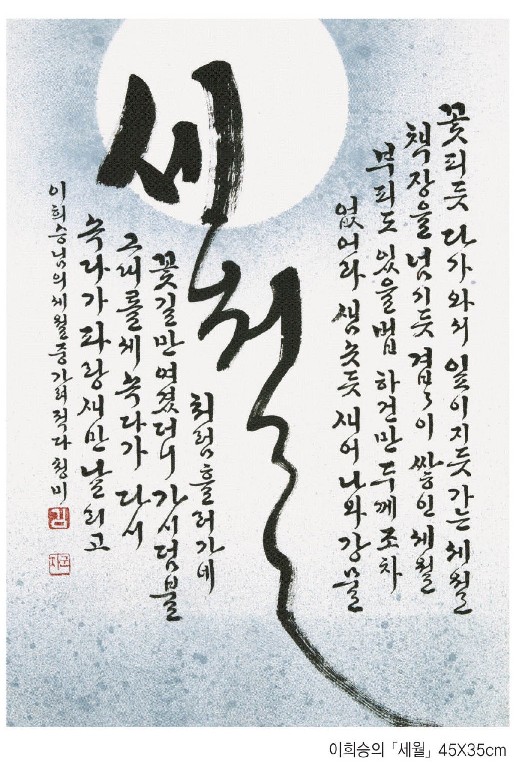 세월
꽃피듯 다가와서 잎이지듯 가는 세월
책장을 넘기듯 겹겹이 쌓인 세월
부피도 있을법 하건만 두께조차
없어라 샘솟듯 새어나와 강물
처럼 흘러가네
꽃길만 여겼더니 가시덤불
그때를 세속다가 다시
속다가 파랑새만 날리고
이희승님의 세월 중 가려적다 청미
이희승의 「세월」 45X35cm